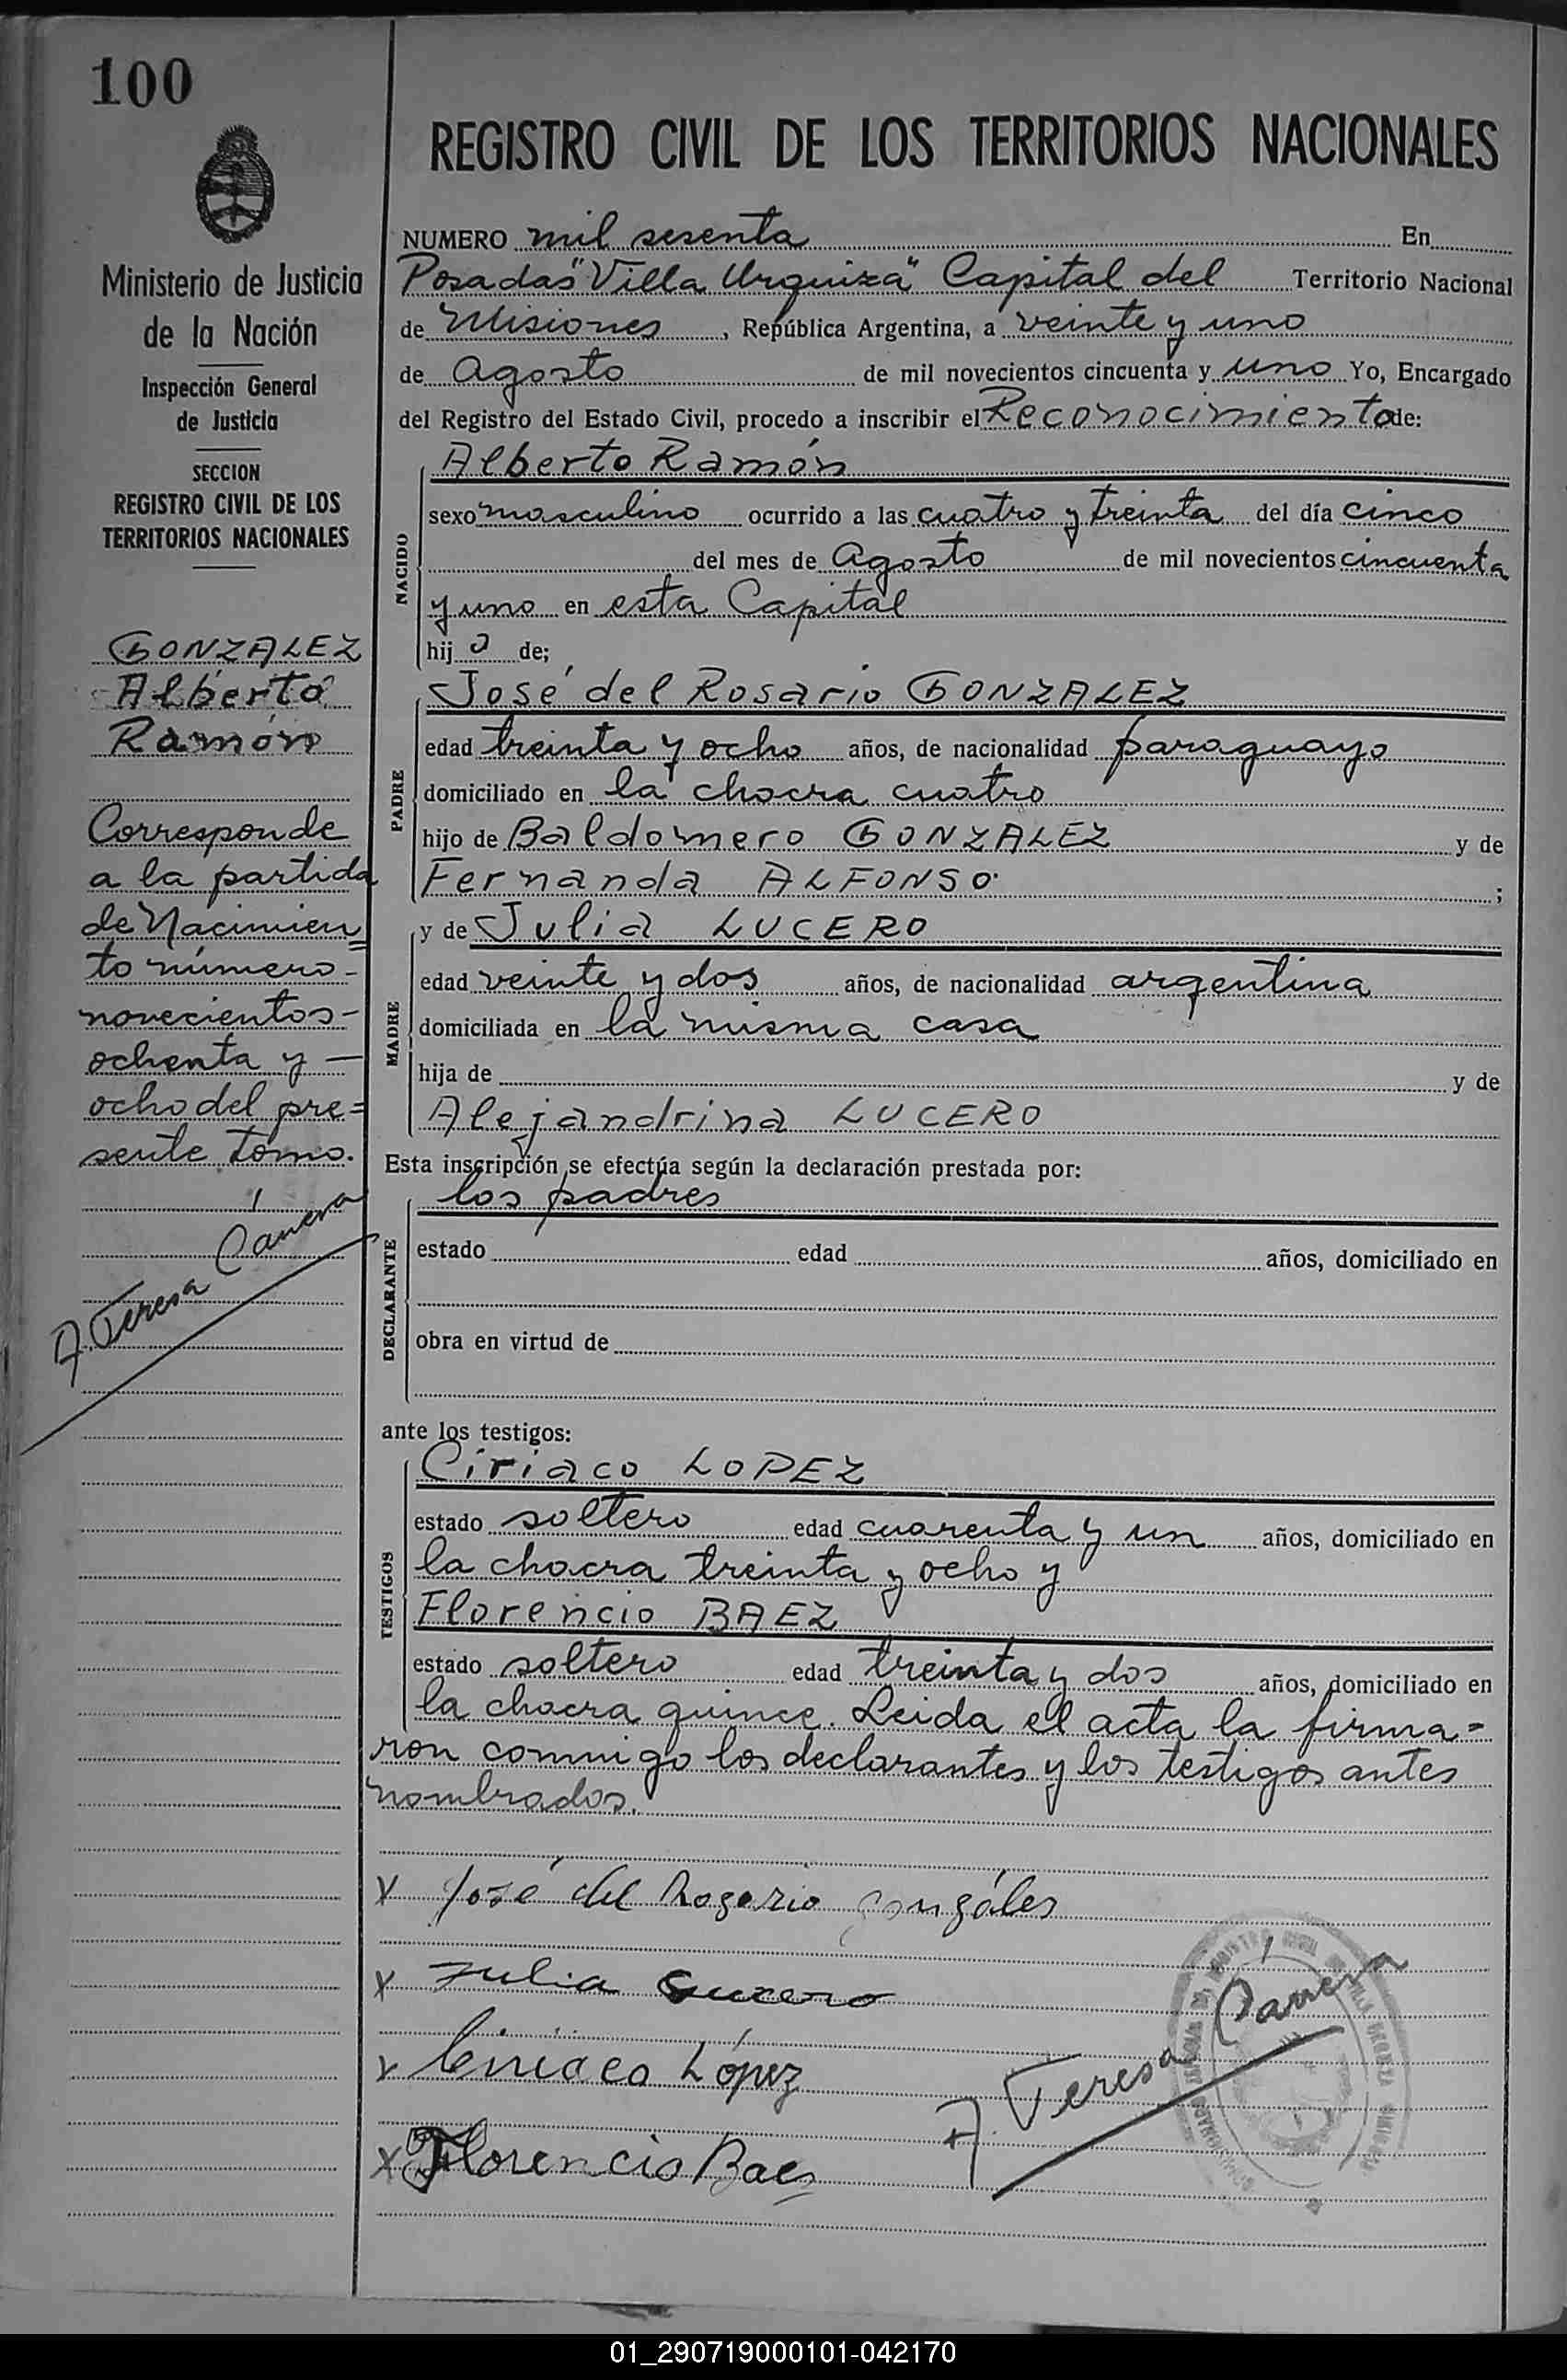 100
REGISTRO CIVIL DE LOS TERRITORIOS NACIONALES
Ministerio de Justicia
de la Nación
Inspección General
de Justicia
SECCION
REGISTRO CIVIL DE LOS
TERRITORIOS NACIONALES
GONZALEZ
Alberto
Ramón
Corresponde
a la partida
de Nacimien=
to número-
novecientos-
ochenta y —
ocho del pre=
sente tomo.
A. Teresa
NUMERO mil sesenta En
Posadas "Villa Urquiza" Capital del Territorio Nacional
de Misiones, República Argentina, a veinte y uno
de Agosto de mil novecientos cincuenta y uno Yo, Encargado
del Registro del Estado Civil, procedo a inscribir el Reconocimiento de:
NACIDO
Alberto Ramón
sexo masculino ocurrido a las cuatro y treinta del día cinco
del mes de Agosto de mil novecientos cincuenta
y uno en esta Capital
hijo de;
PADRE
José del Rosario GONZALEZ
edad treinta y ocho años, de nacionalidad paraguayo
domiciliado en la chacra cuatro
hijo de Baldomero GONZALEZ y de
Fernanda ALFONSO ;
MADRE
y de Julia LUCERO
edad veinte y dos años, de nacionalidad argentina
domiciliada en la misma casa
hija de y de
Alejandrina LUCERO
Esta inscripción se efectúa según la declaración prestada por:
DECLARANTE
los padres
estado edad años, domiciliado en
obra en virtud de
ante los testigos:
TESTIGOS
Ciriaco LOPEZ
estado soltero edad cuarenta y un años, domiciliado en
la chacra treinta y ocho y
Florencio BAEZ
estado soltero edad treinta y dos años, domiciliado en
la chacra quince. Leida el acta la firma=
ron conmigo los declarantes y los testigos antes
nombrados.
x José del Rosario gonzáles
x Julia Lucero
x Ciriaco López
x Florencio Baes
A. Teresa
01_290719000101-042170